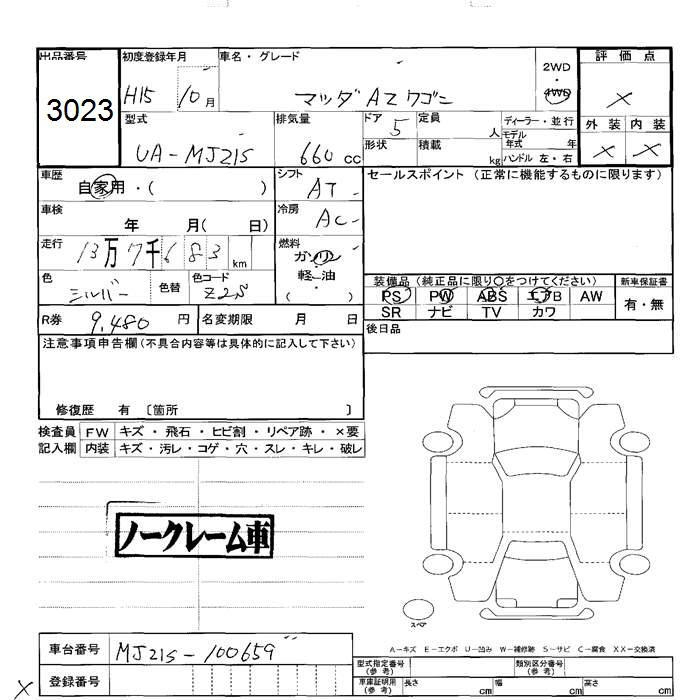 出品番号 初度登録年月 車名・グレード 2WD・4WD 評価点
3023 H15 10月 マツダ AZワゴン ×
型式 排気量 ドア 5 定員 人 ディーラー・並行 外装 内装
UA-MJ21S 660cc 形状 積載 kg モデル年式 年 × ×
ハンドル 左・右
車歴 自家用・( ) シフト AT セールスポイント (正常に機能するものに限ります)
車検 年 月( 日) 冷房 AC
走行 13万7千683km 燃料 ガソリン
軽・油
( )
色 シルバー 色替 色コード Z2S 装備品 (純正品に限り〇をつけてください) 新車保証書
PS PW ABS エアB AW 有・無
SR ナビ TV カワ
R券 9,480円 名変期限 月 日 後日品
注意事項申告欄(不具合内容等は具体的に記入して下さい)
修復歴 有 〔箇所 〕
検査員 FW キズ・飛石・ヒビ割・リペア跡・×要
記入欄 内装 キズ・汚レ・コゲ・穴・スレ・キレ・破レ
ノークレーム車
スペア
A-キズ E-エクボ U-凹み W-補修跡 S-サビ C-腐食 XX-交換済
車台番号 MJ21S-100659 型式指定番号(参考) 類別区分番号(参考)
× 登録番号 車庫証明用(参考) 長さ cm 幅 cm 高さ cm